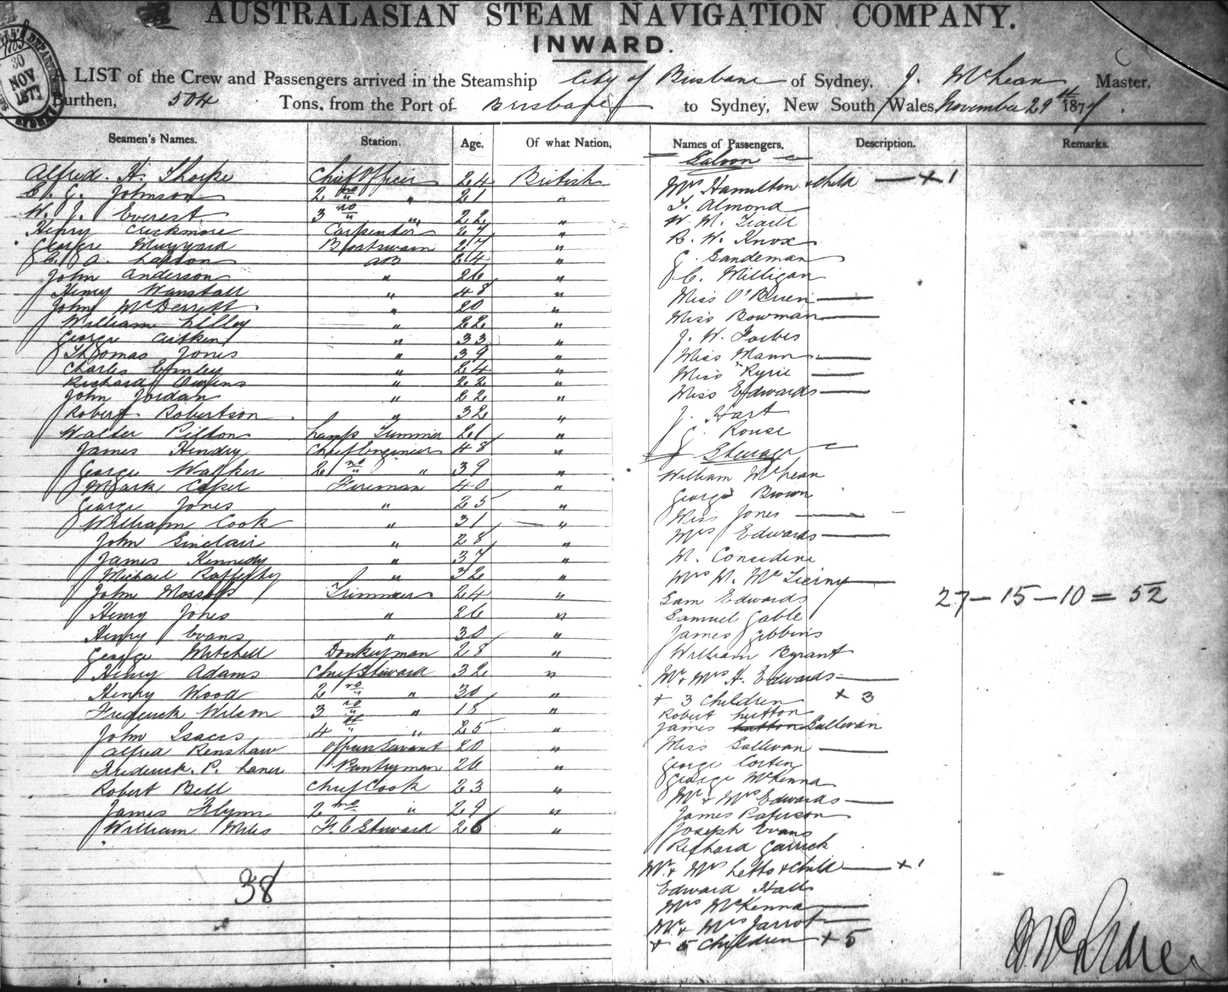 AUSTRALASIAN STEAM NAVIGATION COMPANY.
INWARD.
A LIST of the Crew and Passengers arrived in the Steamship City of Brisbane of Sydney, J. McLean Master,
Burthen, 504 Tons, from the Port of Brisbane to Sydney, New South Wales, November 29th 1877.
30 NOV 1877
Seamen's Names. Station. Age. Of what Nation. Names of Passengers. Description. Remarks.
Saloon
Alfred. H. Thorpe Chief Officer 24 British
C. G. Johnson 2nd " " 21 "
W. J. Everest 3rd " " 22 "
Henry Carpenter 27 "
George Boatswain 27 "
AB 24 "
John Anderson " 26 "
Henry Wanstall " 48 "
John McDerrett " 20 "
William Lilley " 22 "
George Aitken " 33 "
Thomas Jones " 39 "
Charles Emley " 24 "
Richard Owens " 22 "
John Jordan " 22 "
Robert Robertson " 32 "
Walter Pigdon Lamp Trimmer 21 "
James Hendry Chief Engineer 48 "
George Walker 2nd " " 39 "
Mark Caper Fireman 40 "
George Jones " 25 "
William Cook " 31 "
John Sinclair " 28 "
James Kennedy " 37 "
Michael Rafferty " 32 "
John Trimmers 24 "
Henry Jones " 26 "
Henry Evans " 30 "
George Mitchell Donkeyman 28 "
Henry Adams Chief Steward 32 "
Henry Wood 2nd " " 30 "
Frederick Wilson 3rd " " 18 "
John Isaacs 4th " " 25 "
Alfred Renshaw 20 "
Frederick. P. Pantryman 26 "
Robert Bell Chief Cook 23 "
James Flynn 2nd " 29 "
William Miles F. C. Steward 26 "
38
Mrs Hamilton & Child — + 1
F. Almond
W. M. Traill
B. W. Knox
G. Sandeman
C. Milligan
Miss O'Brien —
Miss Bowman —
J. W. Forbes
Miss Mann —
Miss Ryrie —
Miss Edwards —
J. Hart
G. Rouse
Steerage
William McLean
George Brown
Miss Jones —
Mrs Edwards —
M. Considine
Mrs H. McTierny —
Sam Edwards
Samuel Gable
James Gibbins
William Bryant
Mr & Mrs H. Edwards —
+ 3 Children + 3
Robert Hutton
James Hutton Sullivan
Miss Sullivan —
George Costin
George McKenna
Mr & Mrs Edwards —
James Paterson
Joseph Evans
Richard Garrick
Mr & Mrs Letts & Child — + 1
Edward Halls
Mrs McKenna —
Mr & Mrs Jarrot —
+ 5 Children + 5
27 — 15 — 10 = 52